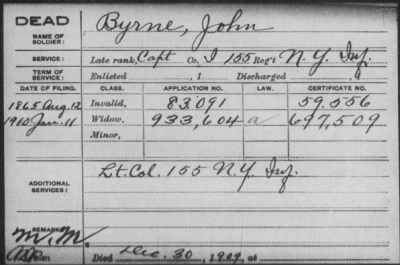 DEAD Byrne, John
NAME OF SOLDIER:
SERVICE: Late rank, Capt Co. I 155 Reg't N.Y. Inf.
TERM OF SERVICE: Enlisted , 1 Discharged , 1
DATE OF FILING. CLASS. APPLICATION NO. LAW. CERTIFICATE NO.
1865 Aug. 12 Invalid, 83091 59,556
1910 Jan. 11 Widow, 933,604 a 697,509
Minor,
ADDITIONAL SERVICES: Lt. Col. 155 N.Y. Inf.
REMARKS:
M.M.
Died Dec. 30, 1909, at